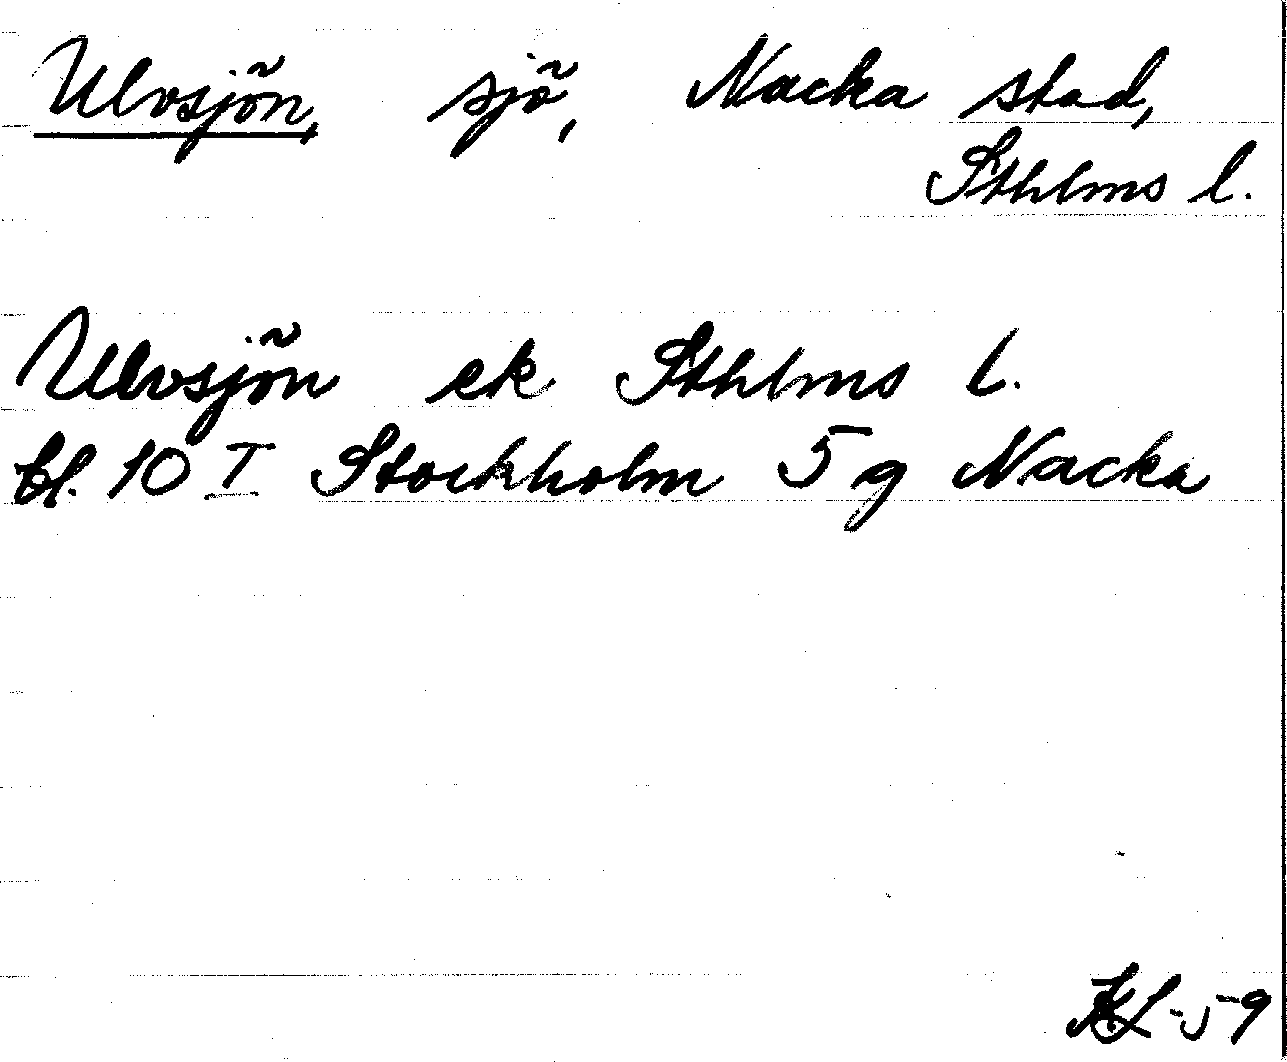 Ulvsjön, sjö, Nacka stad,
Sthlms l.
Ulvsjön ek Sthlms l.
bl. 10 I Stockholm 5 g Nacka
KL -59